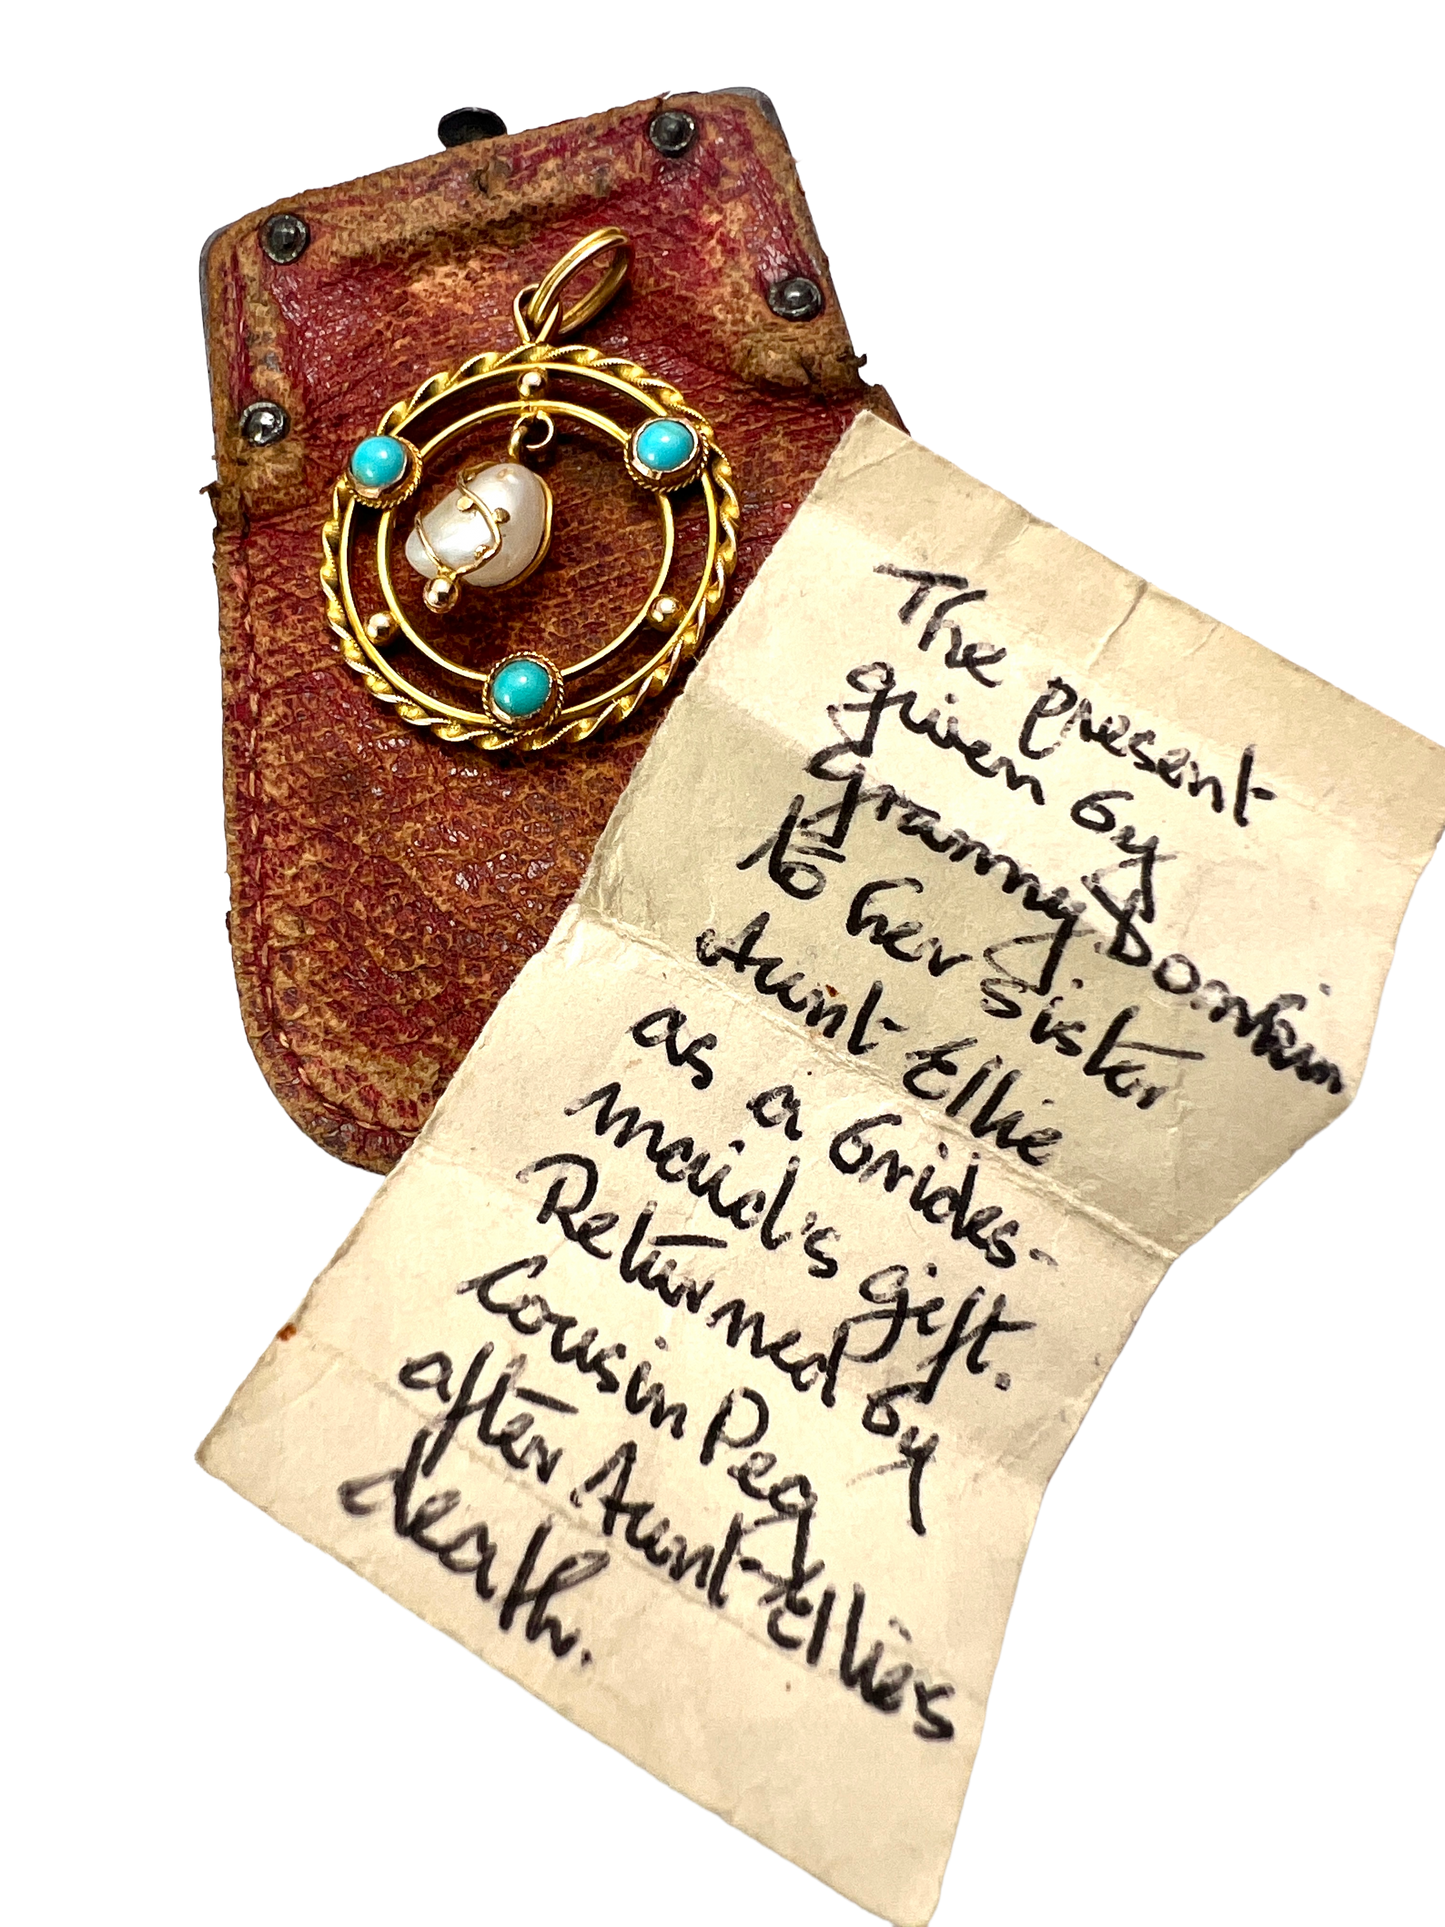 The present
given by
Granny
to her sister
Aunt Ellie
as a brides-
maid's gift.
Returned by
Cousin Peg
after Aunt Ellie's
death.